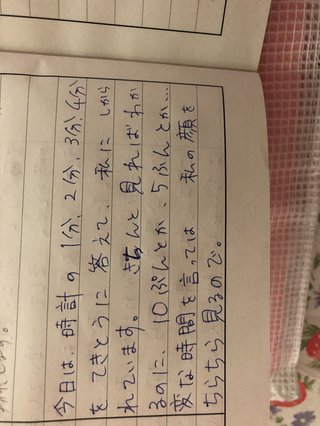 今日は、時計の1分、2分、3分、4分
をてきとうに答えて、私にしから
れています。きちんと見ればわか
るのに、10ぷんとか、5ふんとか…
変な時間を言っては 私の顔を
ちらちら見るので。